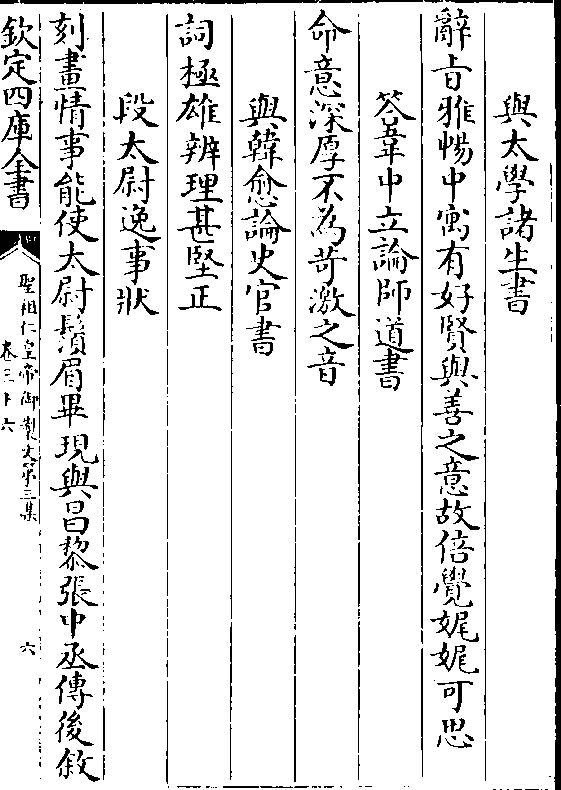 與太學諸生書
辭旨雅暢中寓有好賢與善之意故倍覺娓娓可思
答韋中立論師道書
命意深厚不為苛激之音
與韓愈論史官書
詞極雄辨理甚堅正
段太尉逸事狀
刻畫情事能使太尉鬚眉畢現與昌黎張中丞傳後敘
欽定四庫全書
聖祖仁皇帝御製文第三集
卷三十六
六